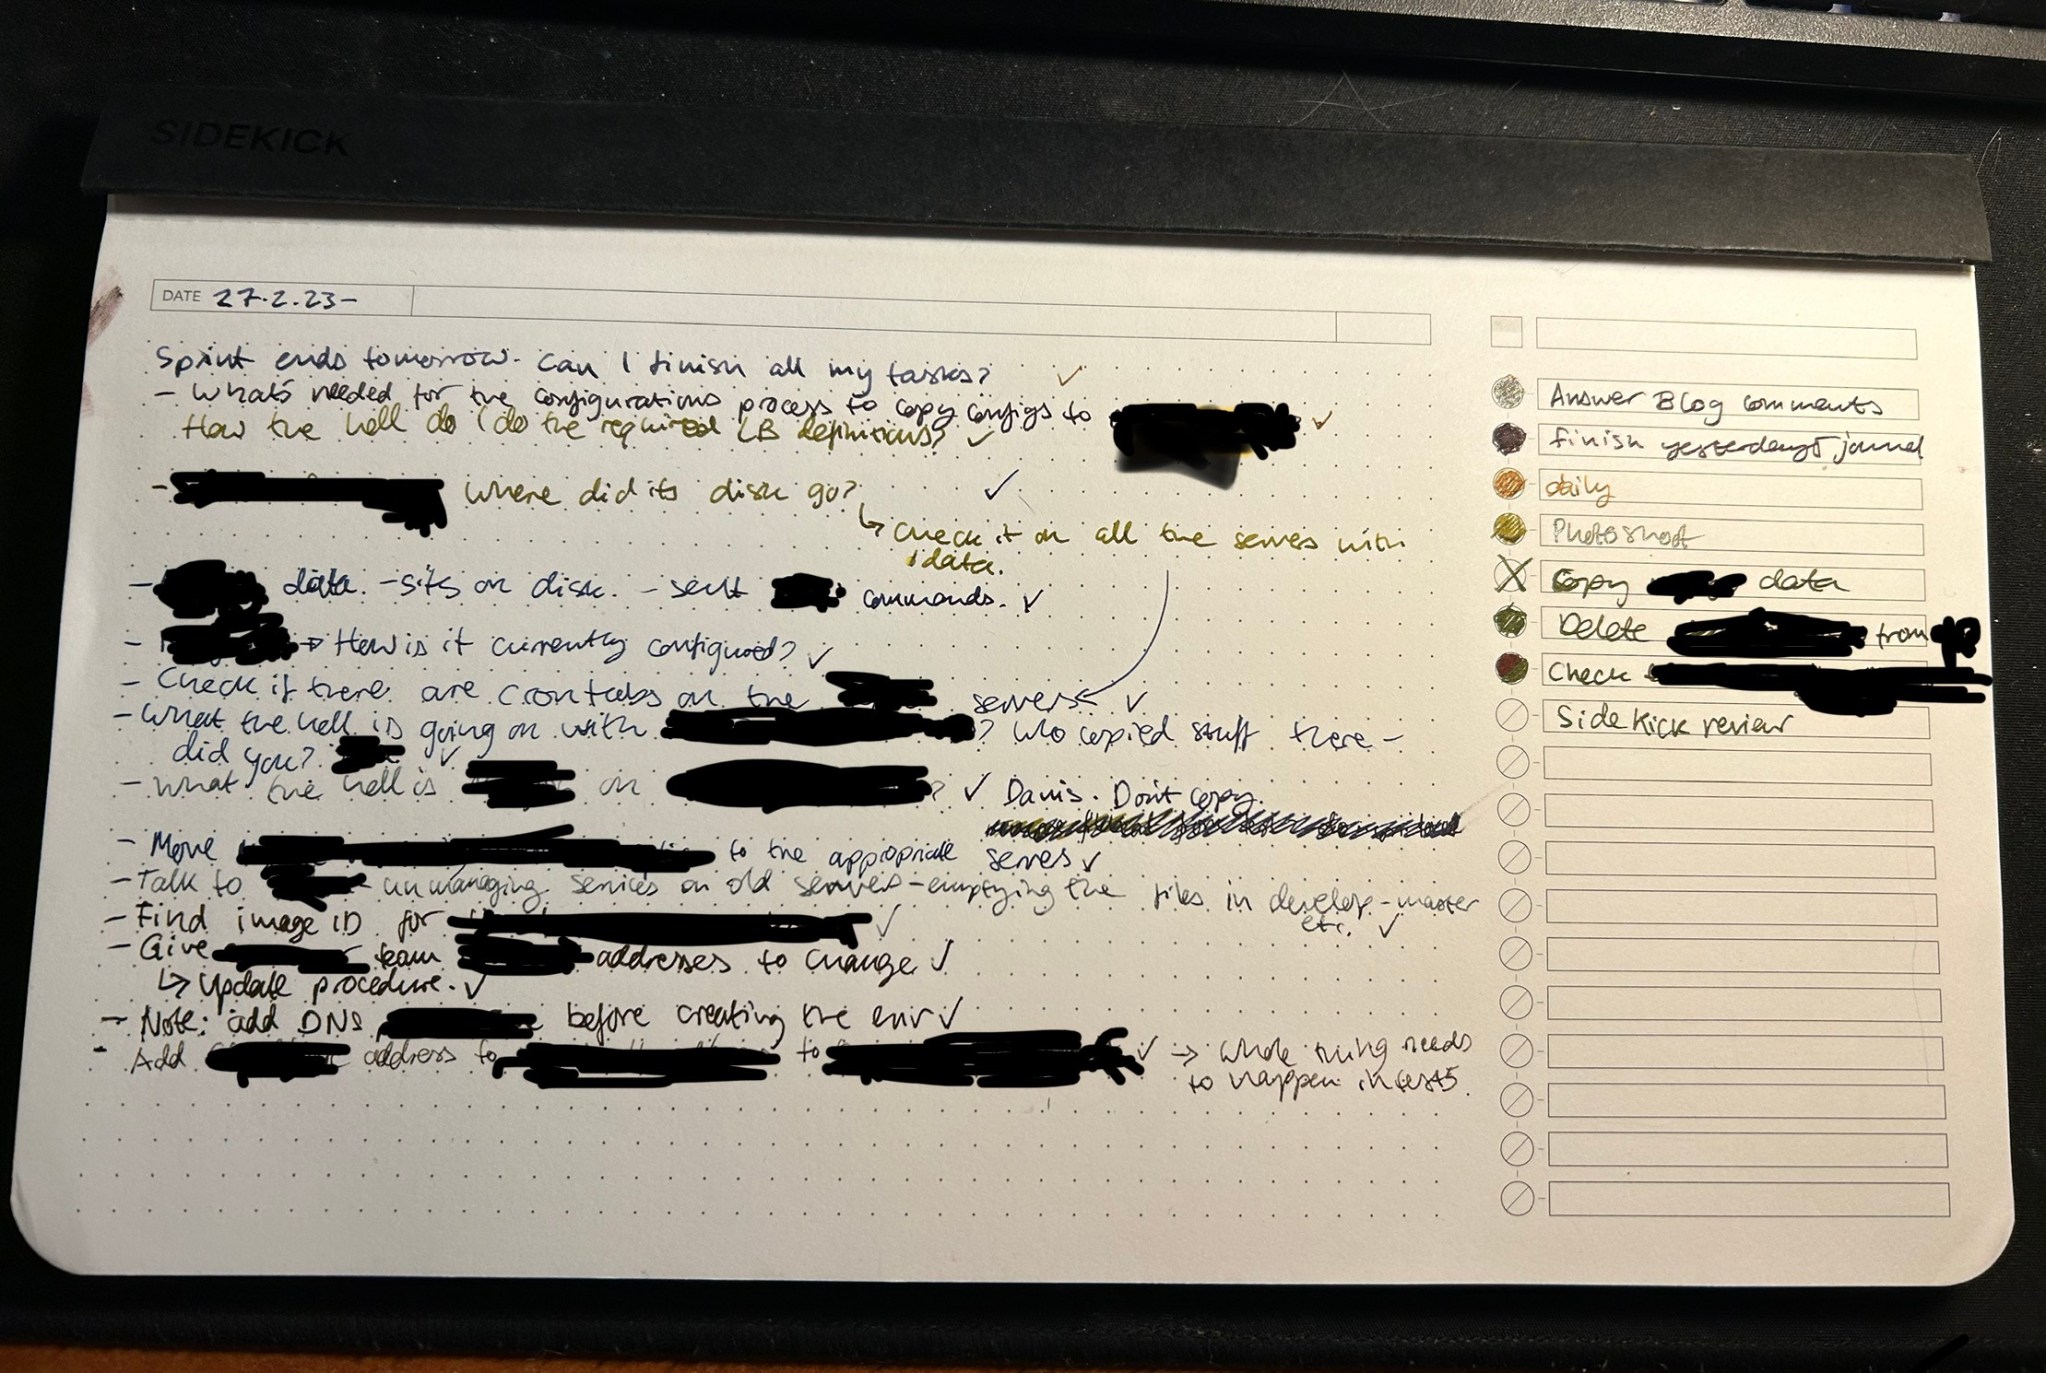 SIDEKICK
DATE 27.2.23-
Sprint ends tomorrow. Can I finish all my tasks? ✓
- What's needed for the configurations process to copy configs to ✓
How the hell do I do the required LB definitions? ✓
- Where did its disk go? ✓
↳ Check it on all the servers with
data.
- data - sits on disk. - sent commands. ✓
- → How is it currently configured? ✓
- Check if there are crontabs on the servers ✓
- What the hell is going on with ? Who copied stuff there -
did you? ✓
- What the hell is on ? ✓ Don't copy.
- Move to the appropriate
servers ✓
- Talk to - unmanaging services on old servers - emptying the files in develop-master
etc. ✓
- Find image ID for ✓
- Give team addresses to change ✓
↳ Update procedure. ✓
- Note: add DNS before creating the env ✓
- Add address to to ✓ → Whole thing needs
to happen in test5.
Answer Blog comments
finish yesterday's journal
daily
Photoshoot
Copy data
Delete from
Check
Sidekick review